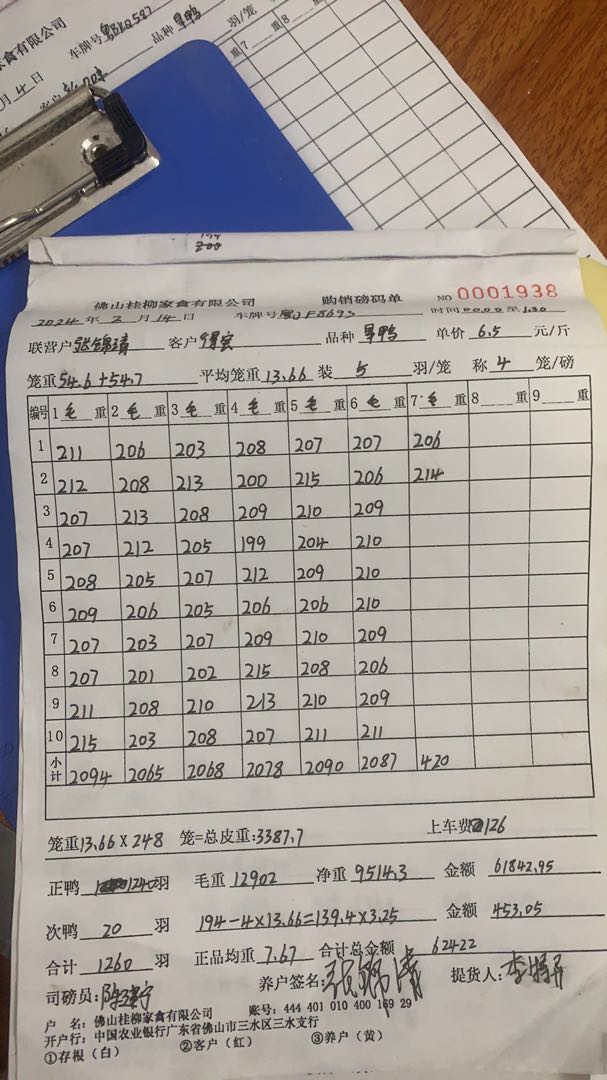 车牌号 粤BKQ587
品种 旱鸭
羽/笼
家禽有限公司
月 4 日
重 7 重 8
佛山桂柳家禽有限公司 购销磅码单 NO 0001938
2024 年 2 月 14 日 车牌号 时间 0000 至 1:30
联营户 张锦清 客户 品种 旱鸭 单价 6.5 元/斤
笼重 54.6+54.7 平均笼重 13.66 装 5 羽/笼 称 4 笼/磅
编号 1 毛 重 2 毛 重 3 毛 重 4 毛 重 5 毛 重 6 毛 重 7 毛 重 8 重 9 重
1 211 206 203 208 207 207 206
2 212 208 213 200 215 206 214
3 207 213 208 209 210 209
4 207 212 205 199 204 210
5 208 205 207 212 209 210
6 209 206 205 206 206 210
7 207 203 207 209 210 209
8 207 201 202 215 208 206
9 211 208 210 213 210 209
10 215 203 208 207 211 211
小计 2094 2065 2068 2078 2090 2087 420
笼重 13.66 X 248 笼=总皮重: 3387.7 上车费 126
正鸭 1240 羽 毛重 12902 净重 9514.3 金额 61842.95
次鸭 20 羽 194-4×13.66=139.4×3.25 金额 453.05
合计 1260 羽 正品均重 7.67 合计总金额 62422
司磅员: 养户签名: 张锦清 提货人:
户 名: 佛山桂柳家禽有限公司 账号: 444 401 010 400 169 29
开户行: 中国农业银行广东省佛山市三水区三水支行
①存根（白） ②客户（红） ③养户（黄）